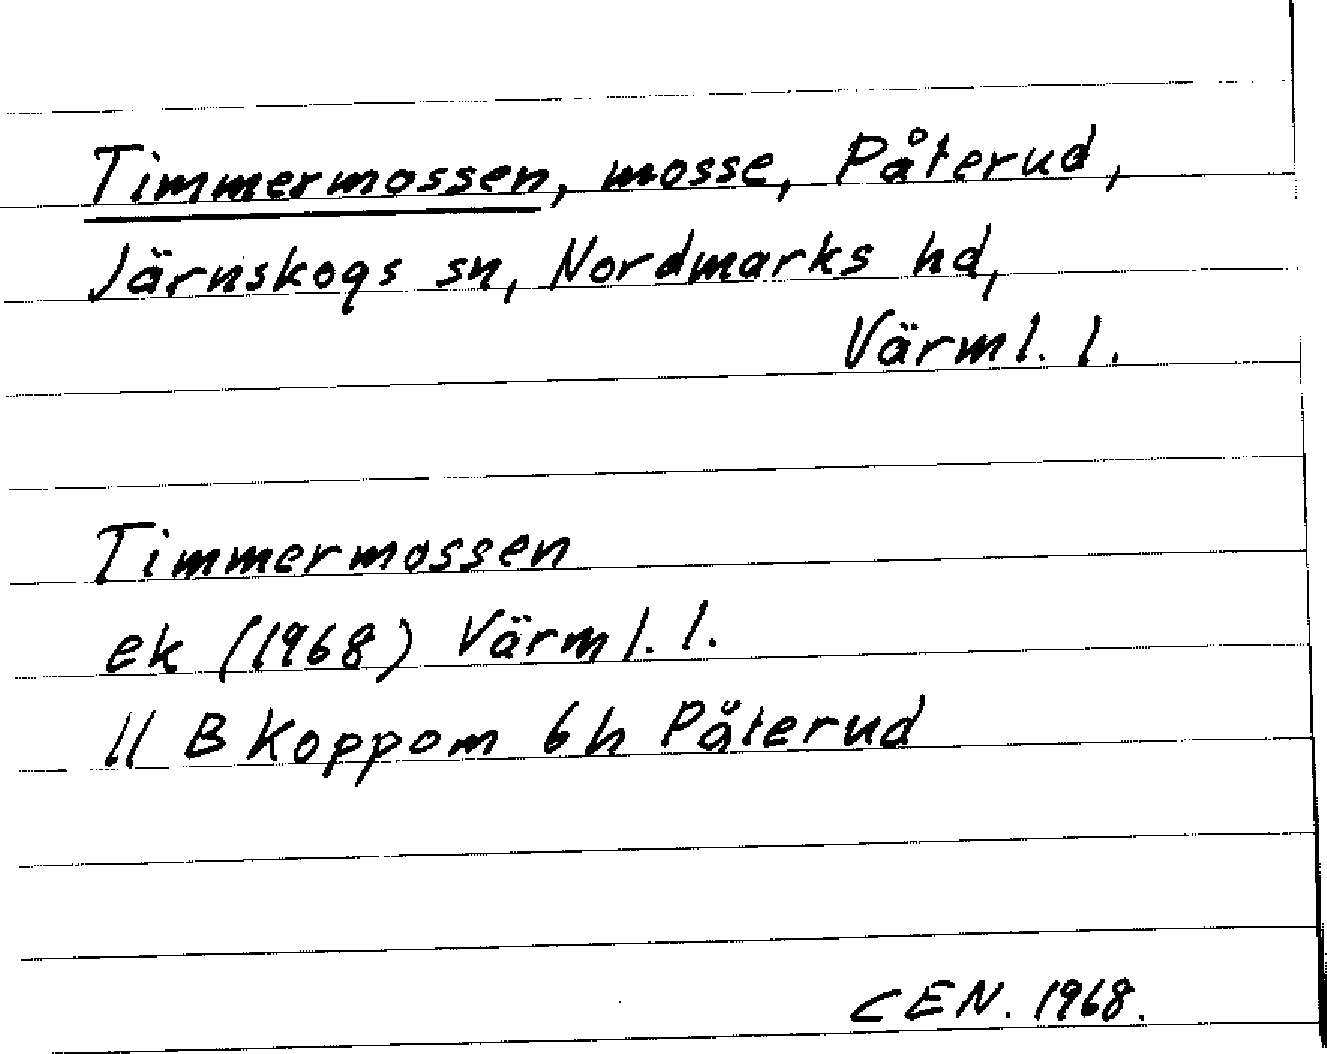 Timmermossen, mosse, Påterud,
Järnskogs sn, Nordmarks hd,
Värml. l.
Timmermossen
ek (1968) Värml. l.
11 B Koppom 6h Påterud
CEN. 1968.